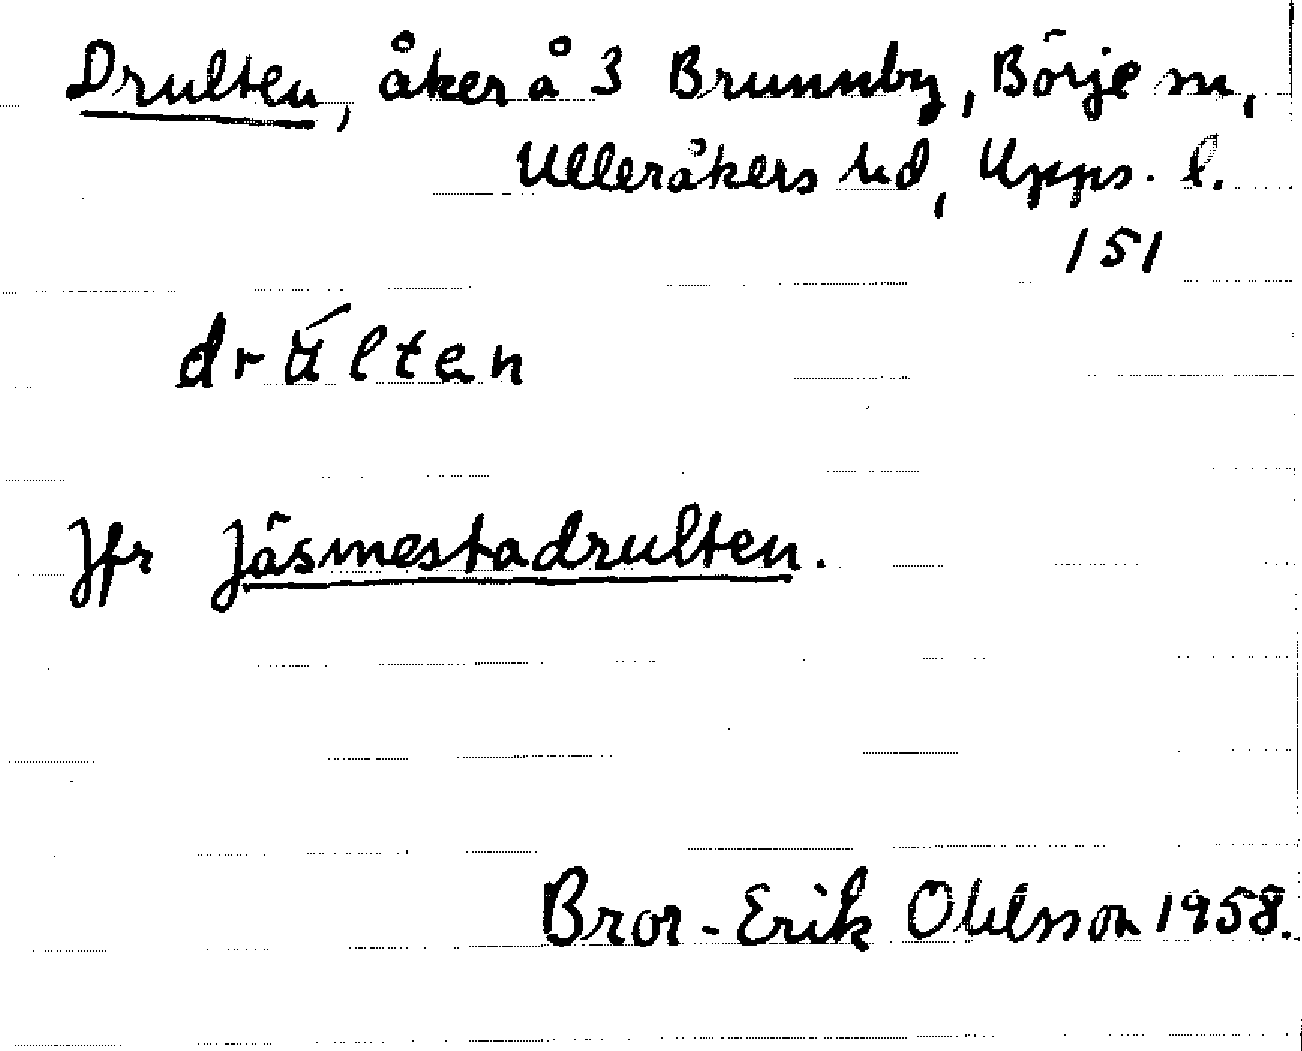 Drulten, åker å 3 Brunnby, Börje sn,
Ulleråkers hd, Upps. l.
151
drúlten
Jfr Jäsmestadrulten.
Bror-Erik Ohlsson 1958.